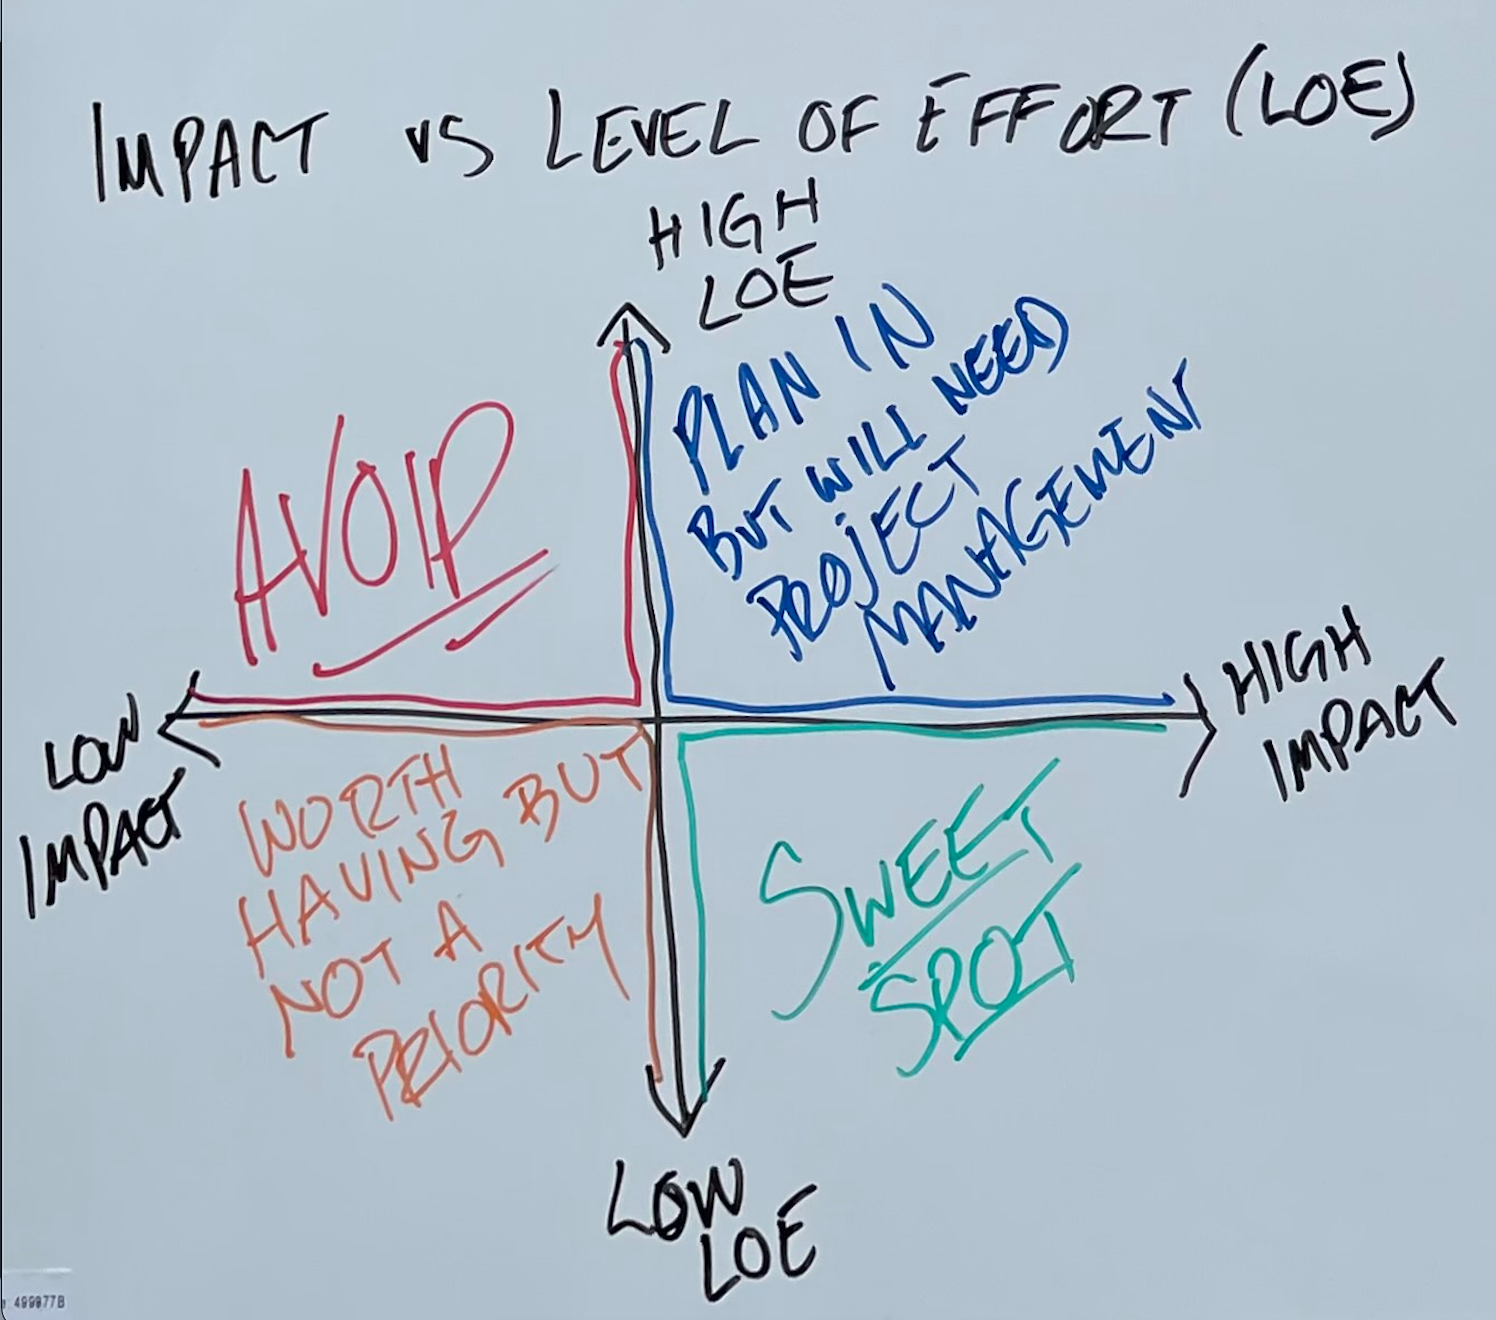 IMPACT vs LEVEL OF EFFORT (LOE)
HIGH
LOE
AVOID
PLAN IN
BUT WILL NEED
PROJECT
MANAGEMENT
LOW
IMPACT
HIGH
IMPACT
WORTH
HAVING BUT
NOT A
PRIORITY
SWEET
SPOT
LOW
LOE